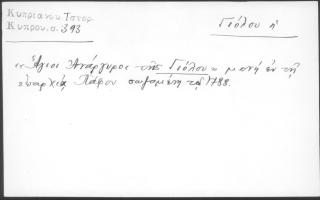 Κυπριανου Ιστορ.
Κυπρου.σ.393
Γιόλου ἡ
«Ἅγιοι Ἀνάργυροι τῆς Γιόλου» μονή ἐν τῇ
ἐπαρχίᾳ Πάφου σωζομένη τῷ 1788.